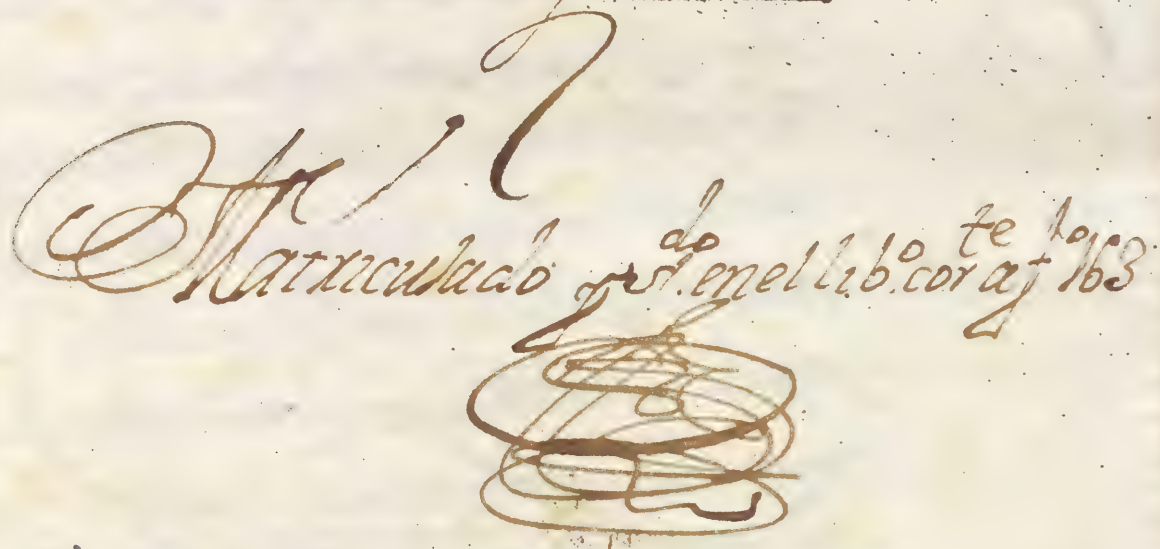 Matriculado y sd.do en el lib.o cor.te a f.s 163